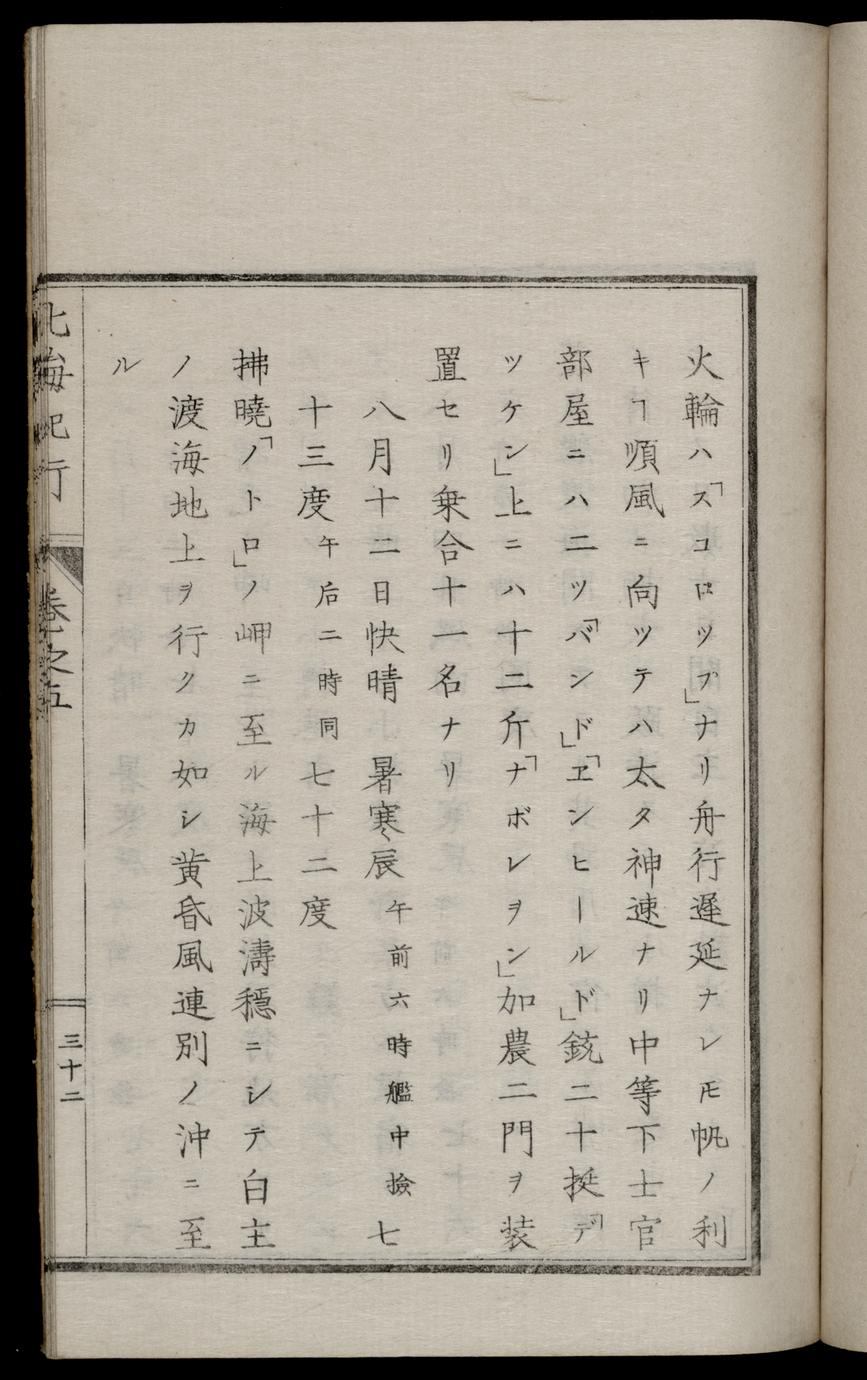 火輪ハ「スコロップ」ナリ舟行遅延ナレ𪜈帆ノ利
キヿ順風ニ向ツテハ太タ神速ナリ中等下士官
部屋ニハ二ツ「バンド」「ヱンヒールド」銃二十挺「デ
ツケン」上ニハ十二斤「ナボレヲン」加農二門ヲ装
置セリ乗合十一名ナリ
八月十二日快晴 暑寒辰 午前六時艦中撿 七
十三度 午后二時同 七十二度
拂曉「ノトロ」ノ岬ニ至ル海上波濤穏ニシテ白主
ノ渡海地上ヲ行クカ如シ黄昏風連別ノ沖ニ至
ル
北海紀行 巻之五 三十二